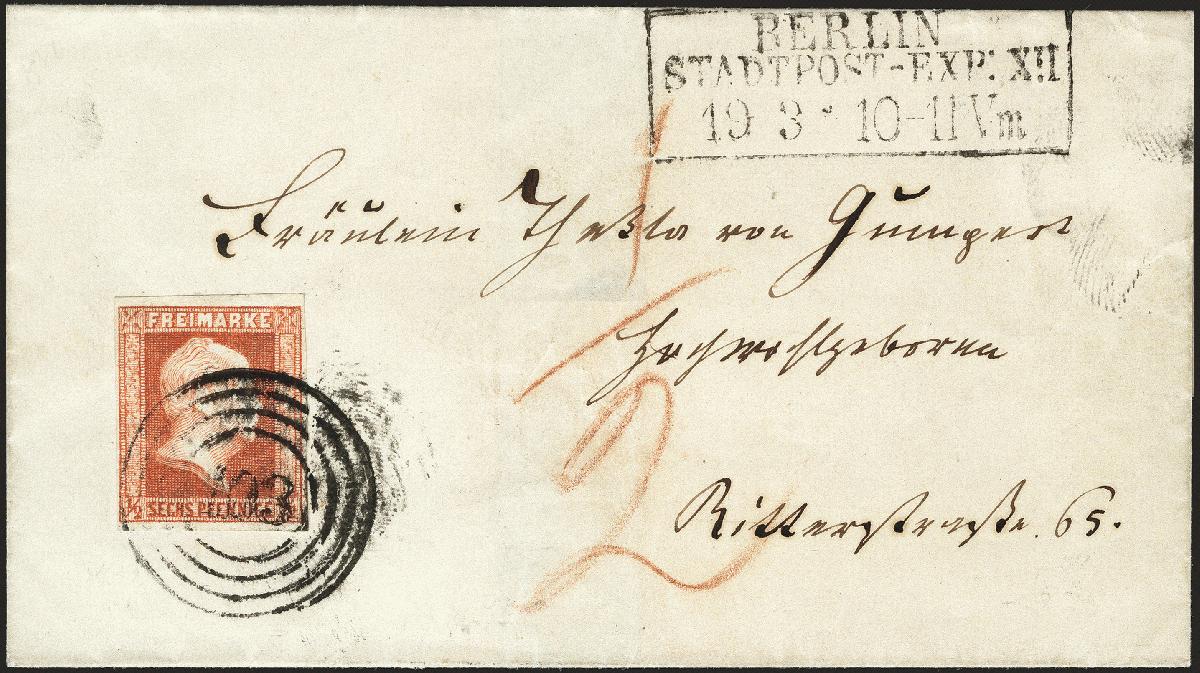 BERLIN
STADTPOST-EXP: XII
19 3 * 10-11 Vm
Fräulein Thekla von Gumpert
Hochwohlgeboren
Ritterstraße 65.
1/2
FREIMARKE
1/2 SECHS PFENNIGE
103